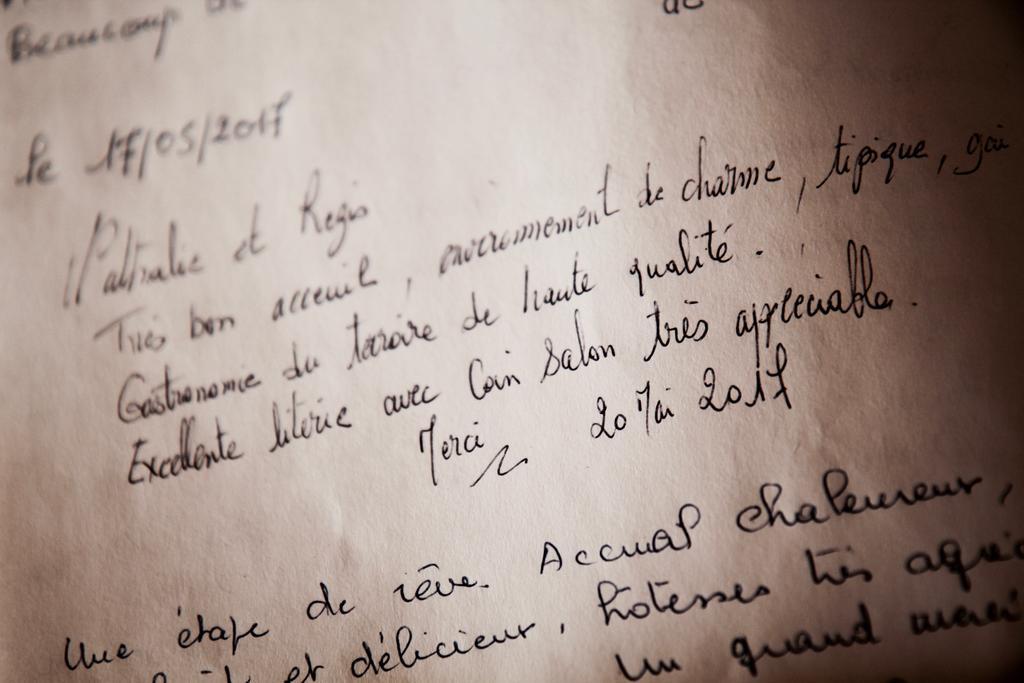 Beaucoup de
de
le 17/05/2017
Nathalie et Régis
Très bon acceuil, environnement de charme, tipique, gai
Gastronomie du terroire de haute qualité.
Excellente literie avec Coin Salon très appreciable.
Merci 20 Mai 2017
Une étape de rêve. Accueil chaleureux,
et délicieux, hotesses très agré
Un grand merci